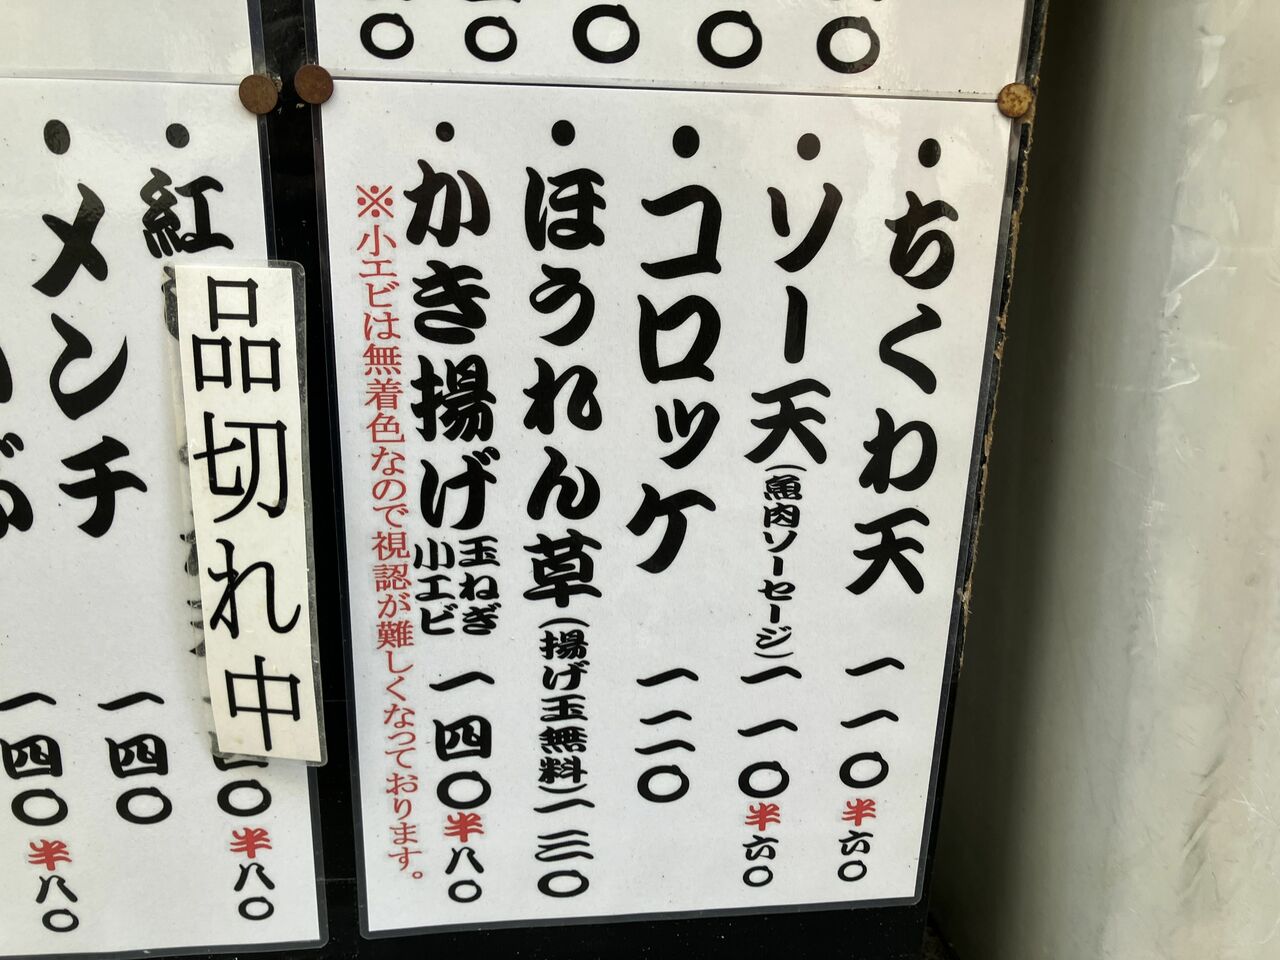 ・ちくわ天 一一〇 半六〇
・ソー天(魚肉ソーセージ)一一〇 半六〇
・コロッケ 一二〇
・ほうれん草(揚げ玉無料)一三〇
・かき揚げ 玉ねぎ 小エビ 一四〇 半八〇
※小エビは無着色なので視認が難しくなっております。
・紅
四〇 半八〇
品切れ中
・メンチ 一四〇
一四〇 半八〇